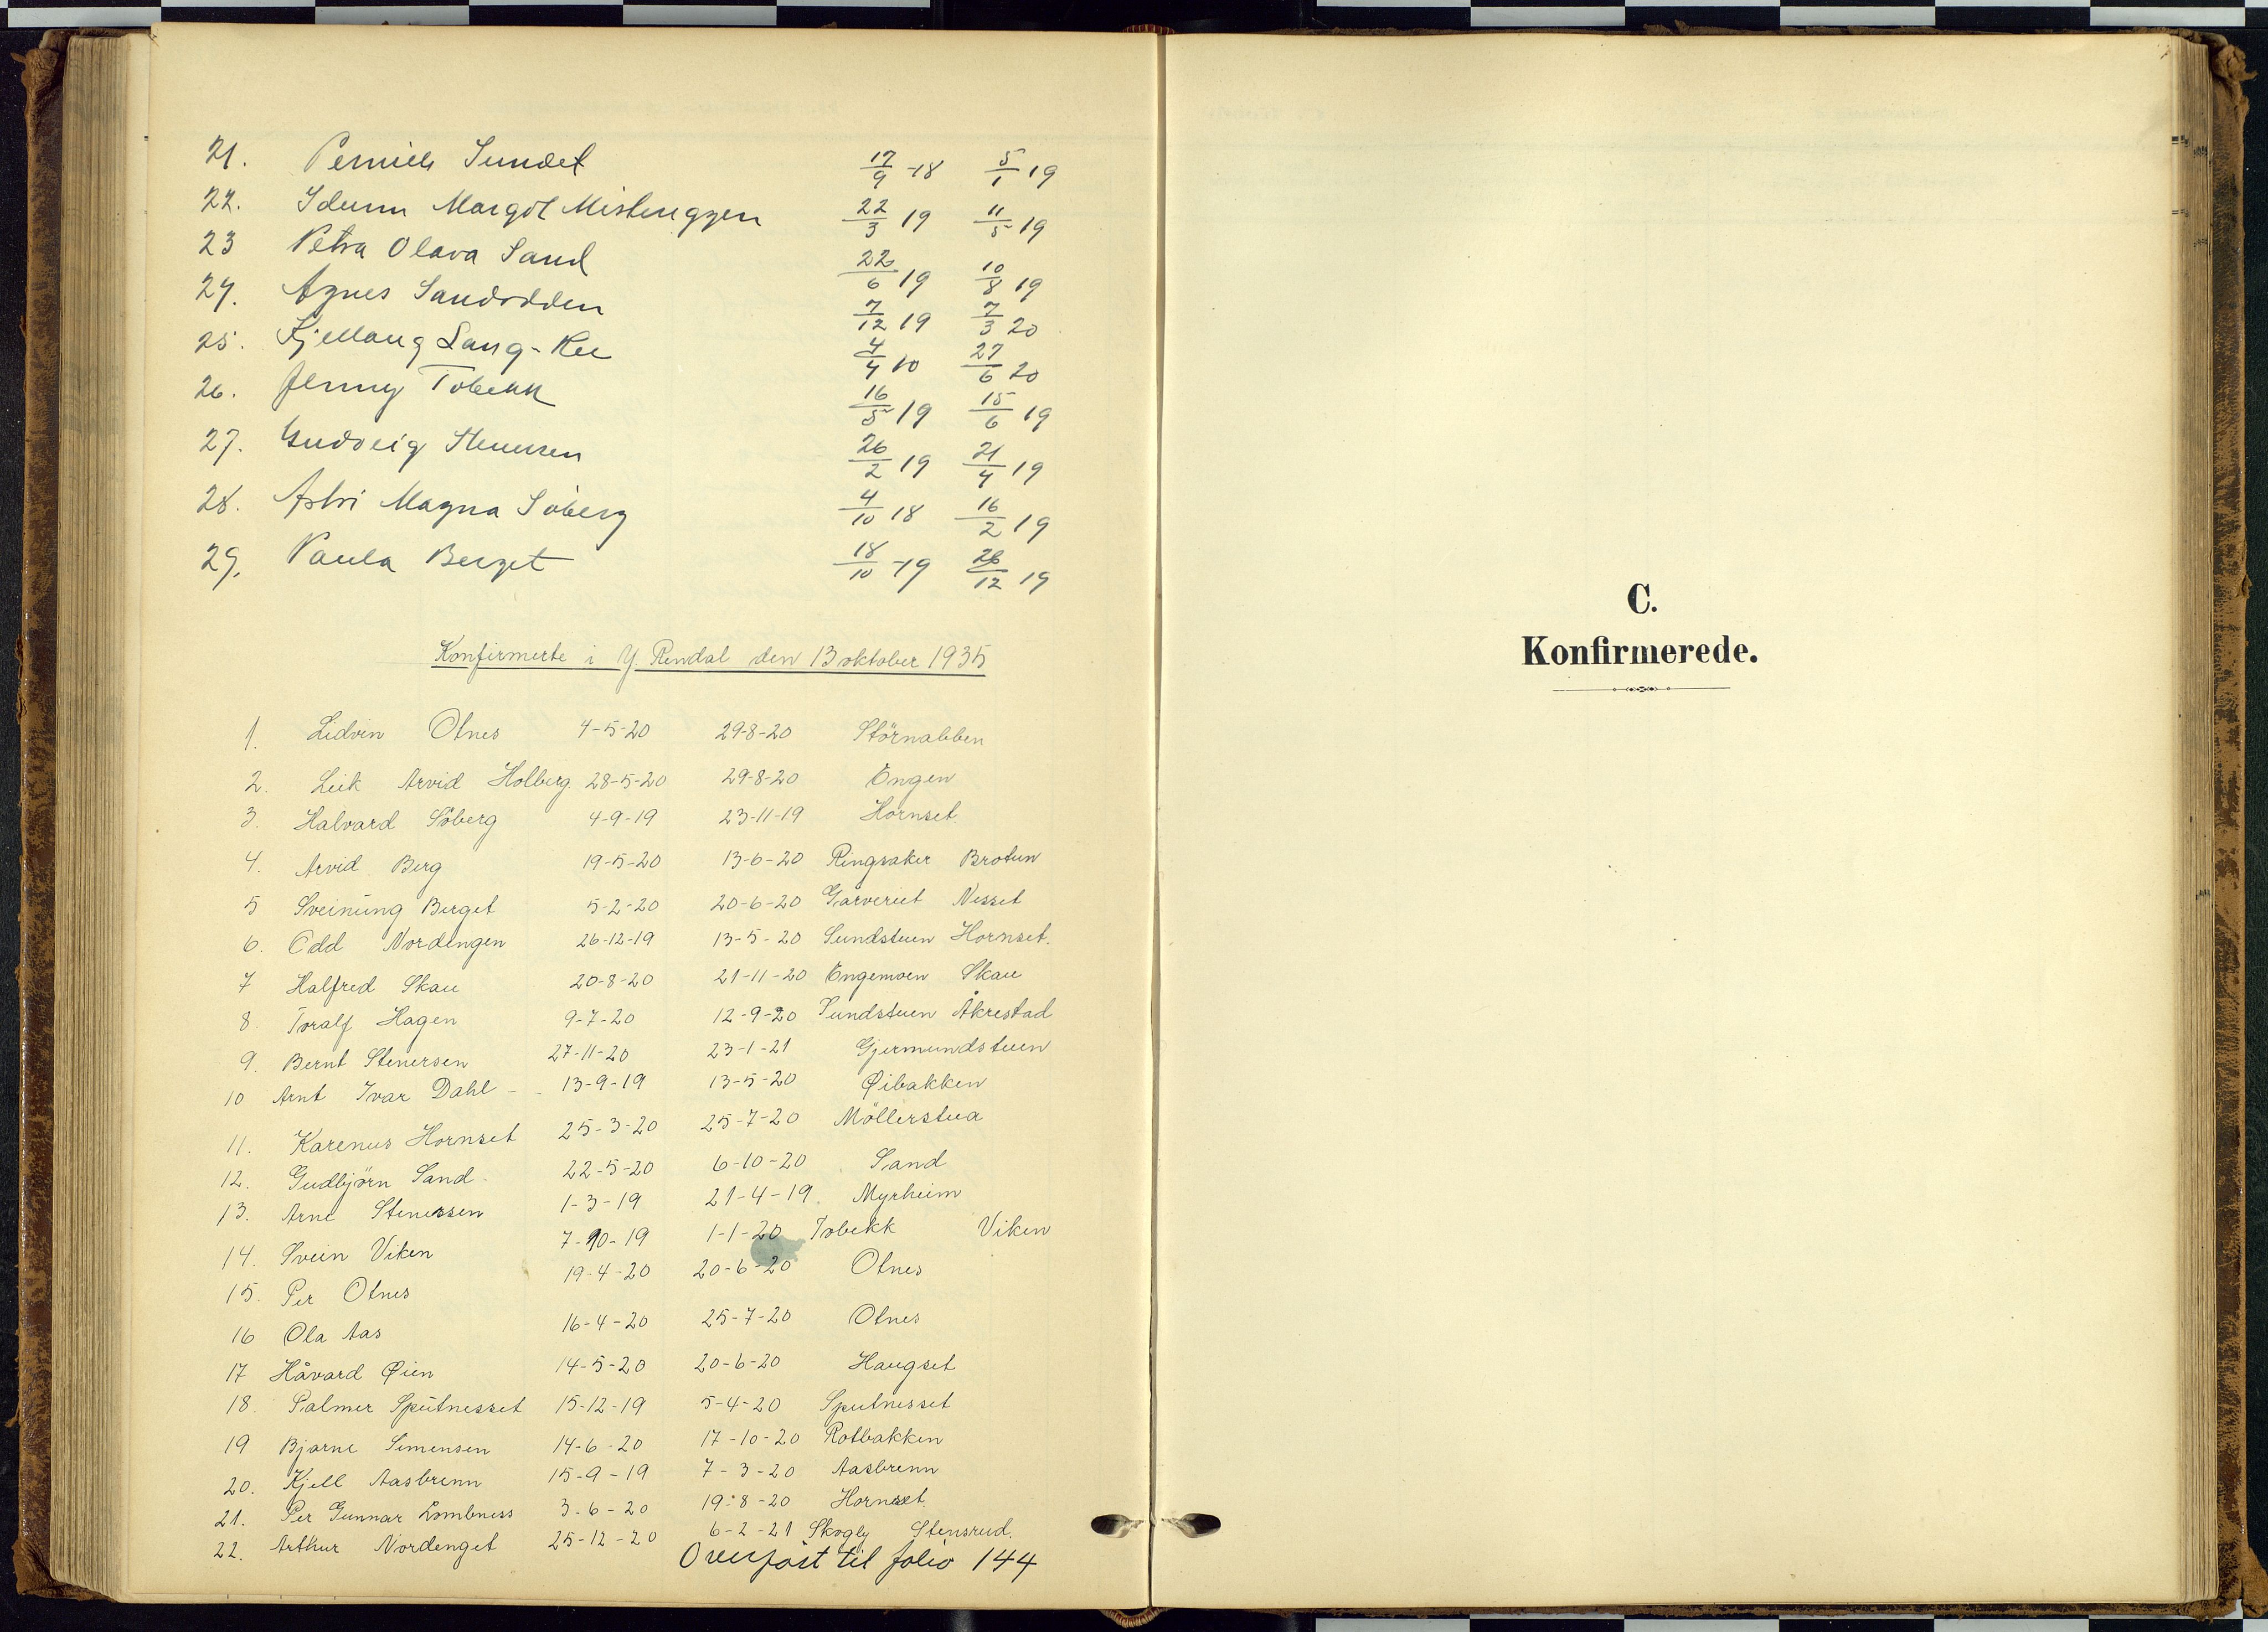 21. Pernille Sundet 17/9 -18 5/1 19
22. Idunn Margot Misteregggen 22/3 19 11/5 19
23 Petra Olava Sand 22/6 19 10/8 19
24. Agnes Sandodden 7/12 19 7/3 20
25. Kjellaug Lang-Ree 4/4 10 27/6 20
26. Jenny Tobekk 16/5 19 15/6 19
27. Gudveig Stenersen 26/2 19 21/4 19
28. Astri Magna Söberg 4/10 18 16/2 19
29. Paula Berget 18/10 -19 26/12 19
Konfirmerte i Y. Rendal den 13 oktober 1935
1. Lidvin Otnes 4-5-20 29-8-20 Störnabben
2. Leik Arvid Holberg 28-5-20 29-8-20 Engen
3. Halvard Söberg 4-9-19 23-11-19 Hornset.
4. Arvid Berg 19-5-20 13-6-20 Ringsaker Brotun
5 Sveinung Berget 5-2-20 20-6-20 Garveriet Nesset
6. Odd Nordengen 26-12-19 13-5-20 Sundstuen Hornset.
7 Halfred Skau 20-8-20 21-11-20 Engemoen Skau
8. Toralf Hagen 9-7-20 12-9-20 Sundstuen Åkrestad
9. Bernt Stenersen 27-11-20 23-1-21 Gjermundstuen
10 Arnt Ivar Dahl - - 13-9-19 13-5-20 Øibakken
11. Karenus Hornset 25-3-20 25-7-20 Möllerstua
12. Gudbjörn Sand 22-5-20 6-10-20 Sand
13. Arne Stenersen 1-3-19 21-4-19. Myrheim
14. Svein Viken 7-10-19 1-1-20 Tobekk Viken
15. Per Otnes 19-4-20 20-6-20 Otnes
16 Ola Aas 16-4-20 25-7-20 Otnes
17 Håvard Øien 14-5-20 20-6-20 Haugset
18. Palmer Sputnesset 15-12-19 5-4-20 Sputnesset
19 Bjarne Simensen 14-6-20 17-10-20 Rotbakken
20. Kjell Aasbrenn 15-9-19 7-3-20 Aasbrenn
21. Per Gunnar Lombness 3-6-20 19-8-20 Hornset.
22. Arthur Nordenget 25-12-20 6-2-21 Skogly Stensrud.
Overföst til folio 144
C.
Konfirmerede.